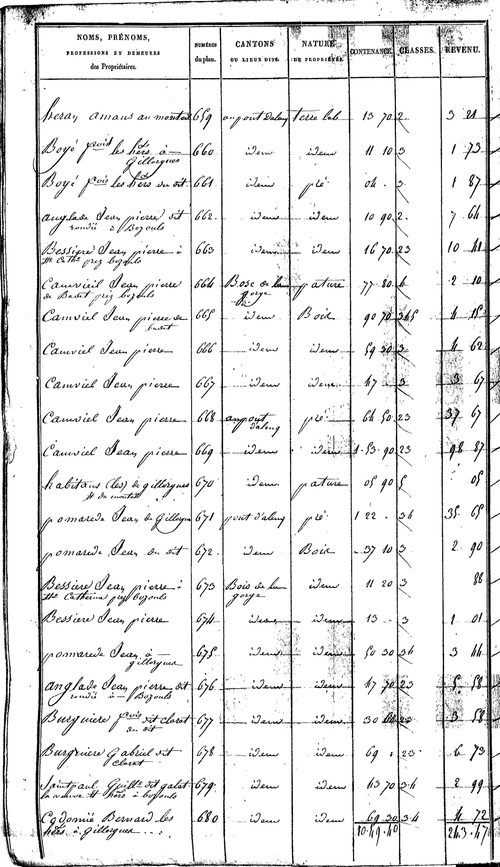 NOMS, PRÉNOMS, PROFESSIONS ET DEMEURES des Propriétaires. NUMÉROS du plan. CANTONS OU LIEUX DITS. NATURE DE PROPRIÉTÉ. CONTENANCE. CLASSES. REVENU.
heran amans au monteil 659 au pont dalung terre lab 13 70 2 3 21
Boyé fcois les hers à Gillorgues 660 idem idem 11 10 3 1 73
Boyé fcois les hers du dit 661 idem pré 04 3 1 87
anglade Jean pierre dit roudié à Bozouls 662 idem idem 10 90 2 7 64
Bessiere Jean pierre à Ste Cathe prez bozouls 663 idem idem 16 70 23 10 41
Camviel Jean pierre de Badet prez bozouls 664 Bosc de la gorge pature 77 80 4 2 10
Camviel Jean pierre de badet 665 idem Bois 90 70 345 4 15
Camviel Jean pierre 666 idem idem 59 30 3 4 62
Camviel Jean pierre 667 idem idem 47 3 3 67
Camviel Jean pierre 668 au pont dalung pré 64 50 23 37 67
Camviel Jean pierre 669 idem idem 1 53 90 23 98 87
habitans (les) de gillorgues 670 idem pature 05 90 5 05
pomarede Jean de Gillorgues 671 pont dalung pré 1 22 34 35 65
pomarede Jean du dit 672 idem Bois 37 10 3 2 90
Bessiere Jean pierre à Ste Catherine prez bozouls 673 Bois de la gorge idem 11 20 3 88
Bessiere Jean pierre 674 idem idem 13 3 1 01
pomarede Jean à gillorgues 675 idem idem 50 30 34 3 44
anglade Jean pierre dit roudié à Bozouls 676 idem idem 47 70 23 5 58
Burguiere fcois dit claret du dit 677 idem idem 30 23 3 58
Burguiere Gabriel dit claret 678 idem idem 69 23 6 73
Saintpaul Guillme dit galat la veuve et hers à bozouls 679 idem idem 43 70 34 2 99
Codomié Bernard les hers à gillorgues 680 idem idem 69 30 34 4 72
10.49.40 243.47